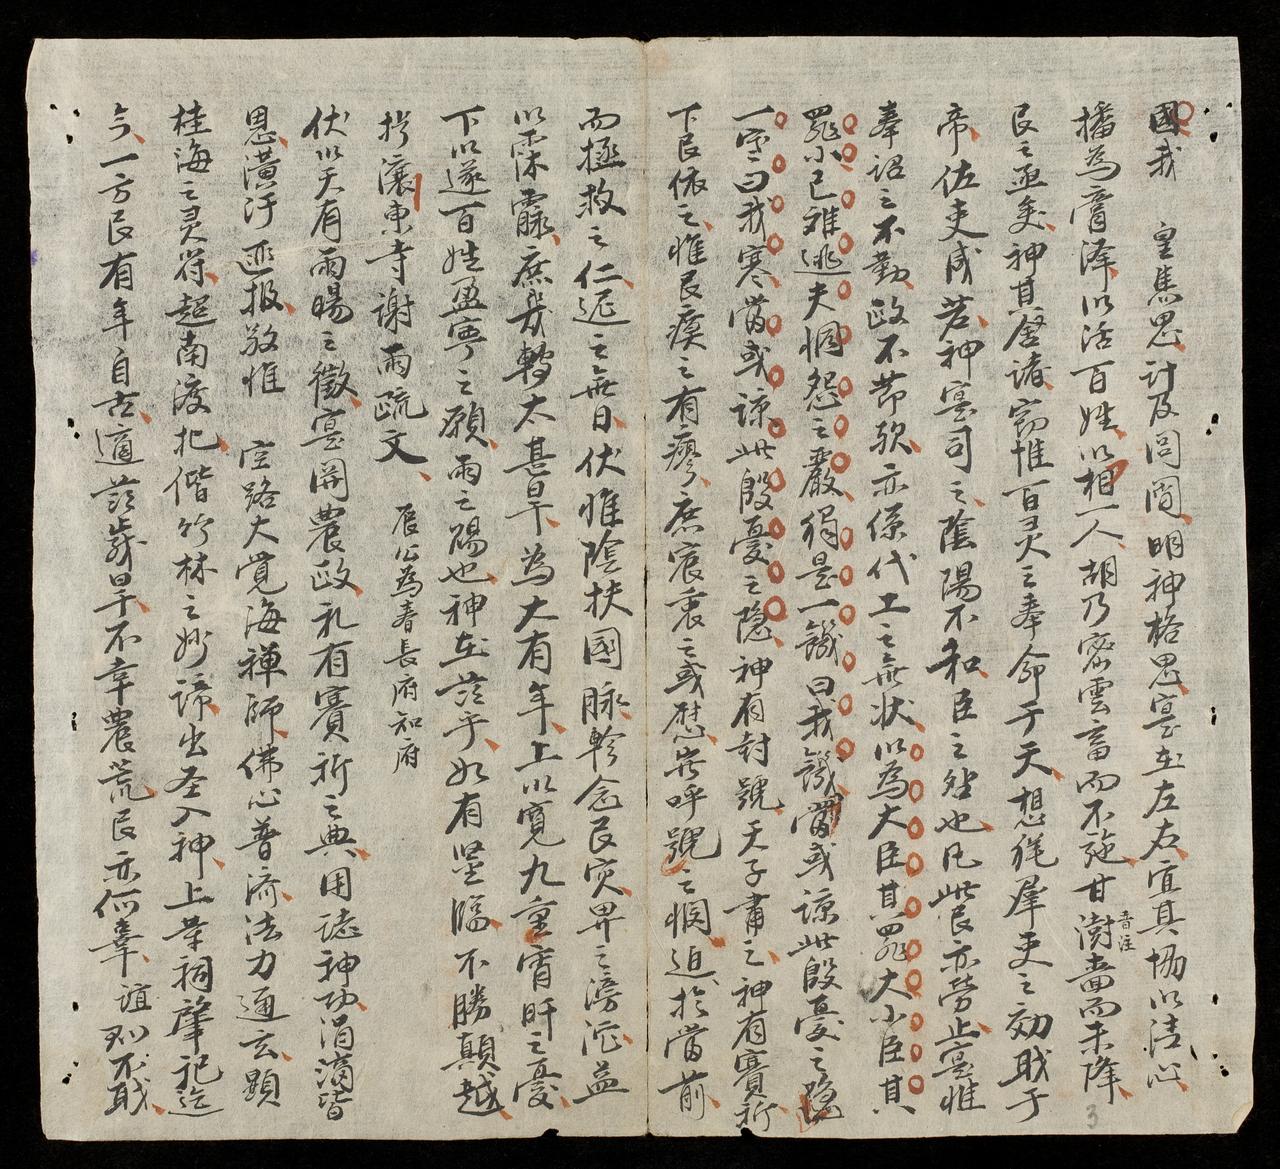 國我 皇焦思計及閭閻明神格思寔在左右宜其協以活心
播為膏澤以活百姓以相一人胡乃密雲畜而不施甘澍音注嗇而未降
民之亟矣神其屑諸窃惟百灵之奉命于天想从羣吏之効职于
帝佐吏咸若神寔司之陰陽不和臣之咎也凡此民亦劳止寔惟
奉詔之不勤政不節欤亦係代工之無状以為大臣其罪大小臣其
罪小已难逃夫恫怨之嚴獨是一饑曰我饑當或諒此殷憂之隐
一寒曰我寒當或諒此殷憂之隐神有封號天子肅之神有賽祈
下民依之惟民瘼之有瘳庶宸衷之或慰岩呼號之恫迫於當前
而拯救之仁延之無日伏惟陰扶國脉軫念民灾畀之滂沱益
以霂霢庶幾轉太甚旱為大有年上以寬九重宵旰之憂
下以遂百姓盈寧之願雨之賜也神在茲乎如有坚臨不勝顛越
於瀼東寺谢雨疏文 辰公為春長府知府
伏以天有雨暘之徵寔関農政礼有賽祈之典用誌神功涓滴皆
恩潢汙匪报敬惟 空路大覺海禪師佛心普济法力通玄顕
桂海之灵符超南渡北偕竹林之妙諦出圣入神上荣祠肇祀迄
今一方民有年自古適茲歲旱不幸農荒民亦何辜誼則不职